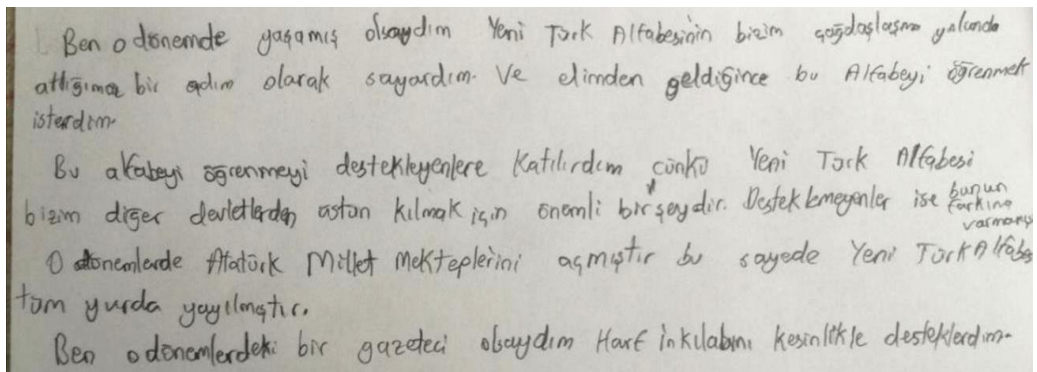 Ben o dönemde yaşamış olsaydım Yeni Türk Alfabesinin bizim çağdaşlaşma yolunda
attığımız bir adım olarak sayardım. Ve elimden geldiğince bu Alfabeyi öğrenmek
isterdim.
Bu alfabeyi öğrenmeyi destekleyenlere katılırdım çünkü Yeni Türk Alfabesi
bizim diğer devletlerden üstün kılmak için önemli bir şeydir. Desteklemeyenler ise bunun
farkına
varmamış
O dönemlerde Atatürk Millet Mekteplerini açmıştır bu sayede Yeni Türk Alfabes
tüm yurda yayılmıştır.
Ben o dönemlerdeki bir gazeteci olsaydım Harf inkılabını kesinlikle desteklerdim.